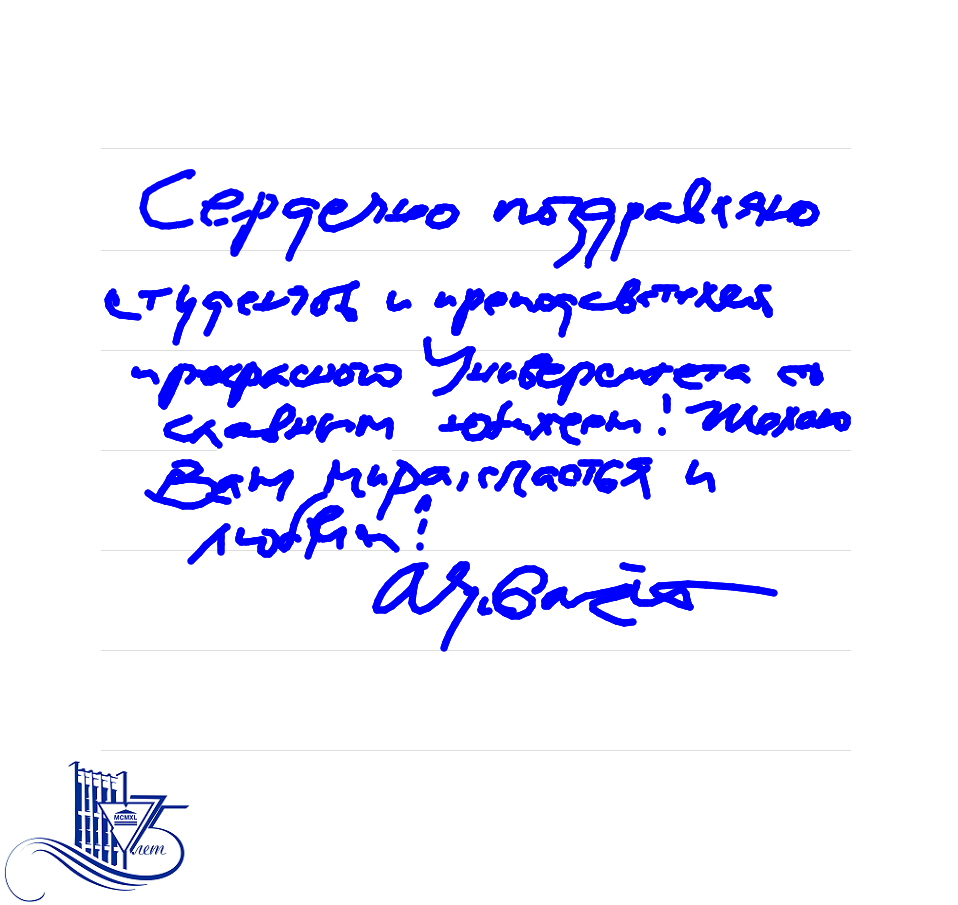 Сердечно поздравляю
студентов и преподавателей
прекрасного Университета со
славным юбилеем! Желаю
Вам мира, счастья и
любви!
MCMXL
75
лет